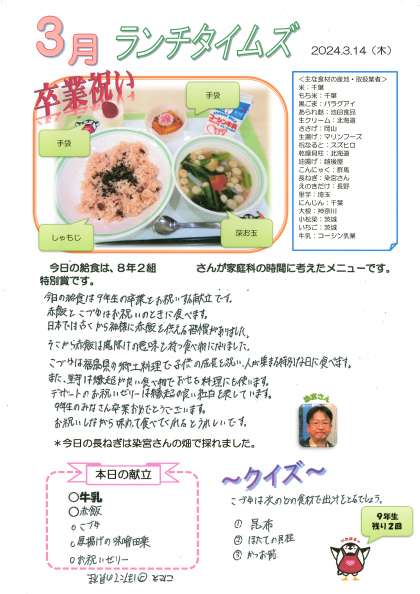 3月 ランチタイムズ
2024.3.14（木）
卒業祝い
手袋
手袋
しゃもじ
深お玉
＜主な食材の産地・取扱業者＞
米：千葉
もち米：千葉
黒ごま：パラグアイ
あられ麩：池田食品
生クリーム：北海道
ささげ：岡山
生揚げ：マリンフーズ
祝なると：スズヒロ
乾燥貝柱：北海道
油揚げ：越後屋
こんにゃく：群馬
長ねぎ：染宮さん
えのきだけ：長野
里芋：埼玉
にんじん：千葉
大根：神奈川
小松菜：茨城
いちご：茨城
牛乳：コーシン乳業
今日の給食は、8年2組 さんが家庭科の時間に考えたメニューです。
特別賞です。
今日の給食は9年生の卒業をお祝いする献立です。
赤飯とこづゆはお祝いのときに食べます。
日本では古くから神様に赤飯を供える習慣がありました。
そこから赤飯は魔除けの意味を持つ食べ物になりました。
こづゆは福島県の郷土料理で子供の成長を祝い、人が集まる特別な日に食べます。
また、里芋は縁起が良い食べ物でおせち料理にも使います。
デザートのお祝いゼリーは縁起の良い紅白を表しています。
9年生のみなさん卒業おめでとうございます。
お祝いしながら味わって食べてくれるとうれしいです。
＊今日の長ねぎは染宮さんの畑で採れました。
染宮さん
本日の献立
○牛乳
○赤飯
○こづゆ
○厚揚げの味噌田楽
○お祝いゼリー
～クイズ～
こづゆは次のどの食材で出汁をとるでしょう。
① 昆布
② ほたての貝柱
③ かつお節
9年生
残り2回
こたえ ②ほたての貝柱